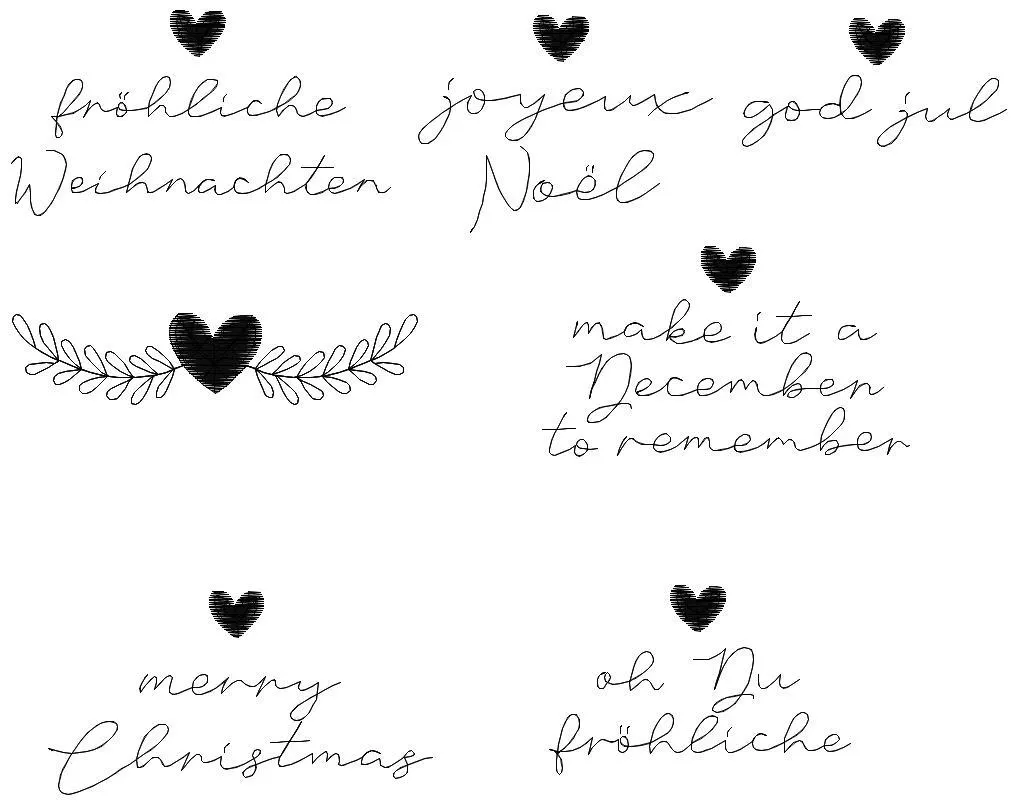 fröhliche
Weihnachten
joyeux
Noël
god jul
make it a
December
to remember
merry
Christmas
oh Du
fröhliche